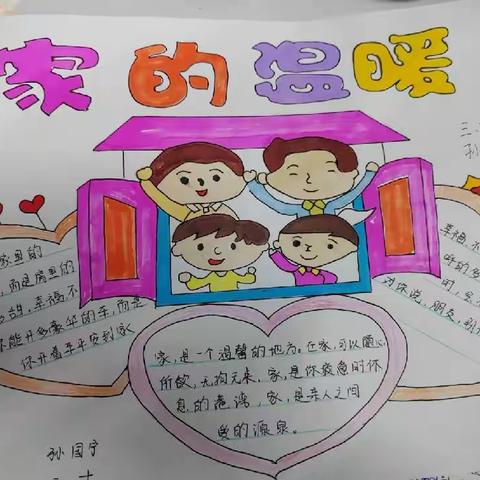 家的温暖
三、
孙
家里的
而是房里的
幸福不
能开多豪华的车,而是
你开着车平安到家
家,是一个温馨的地方。在家,可以随心
所欲,无拘无束,家,是你疲惫时休
息的港湾,家,是亲人之间
爱的源泉。
幸福,不
时,
对你说,朋友,别
孙国宁